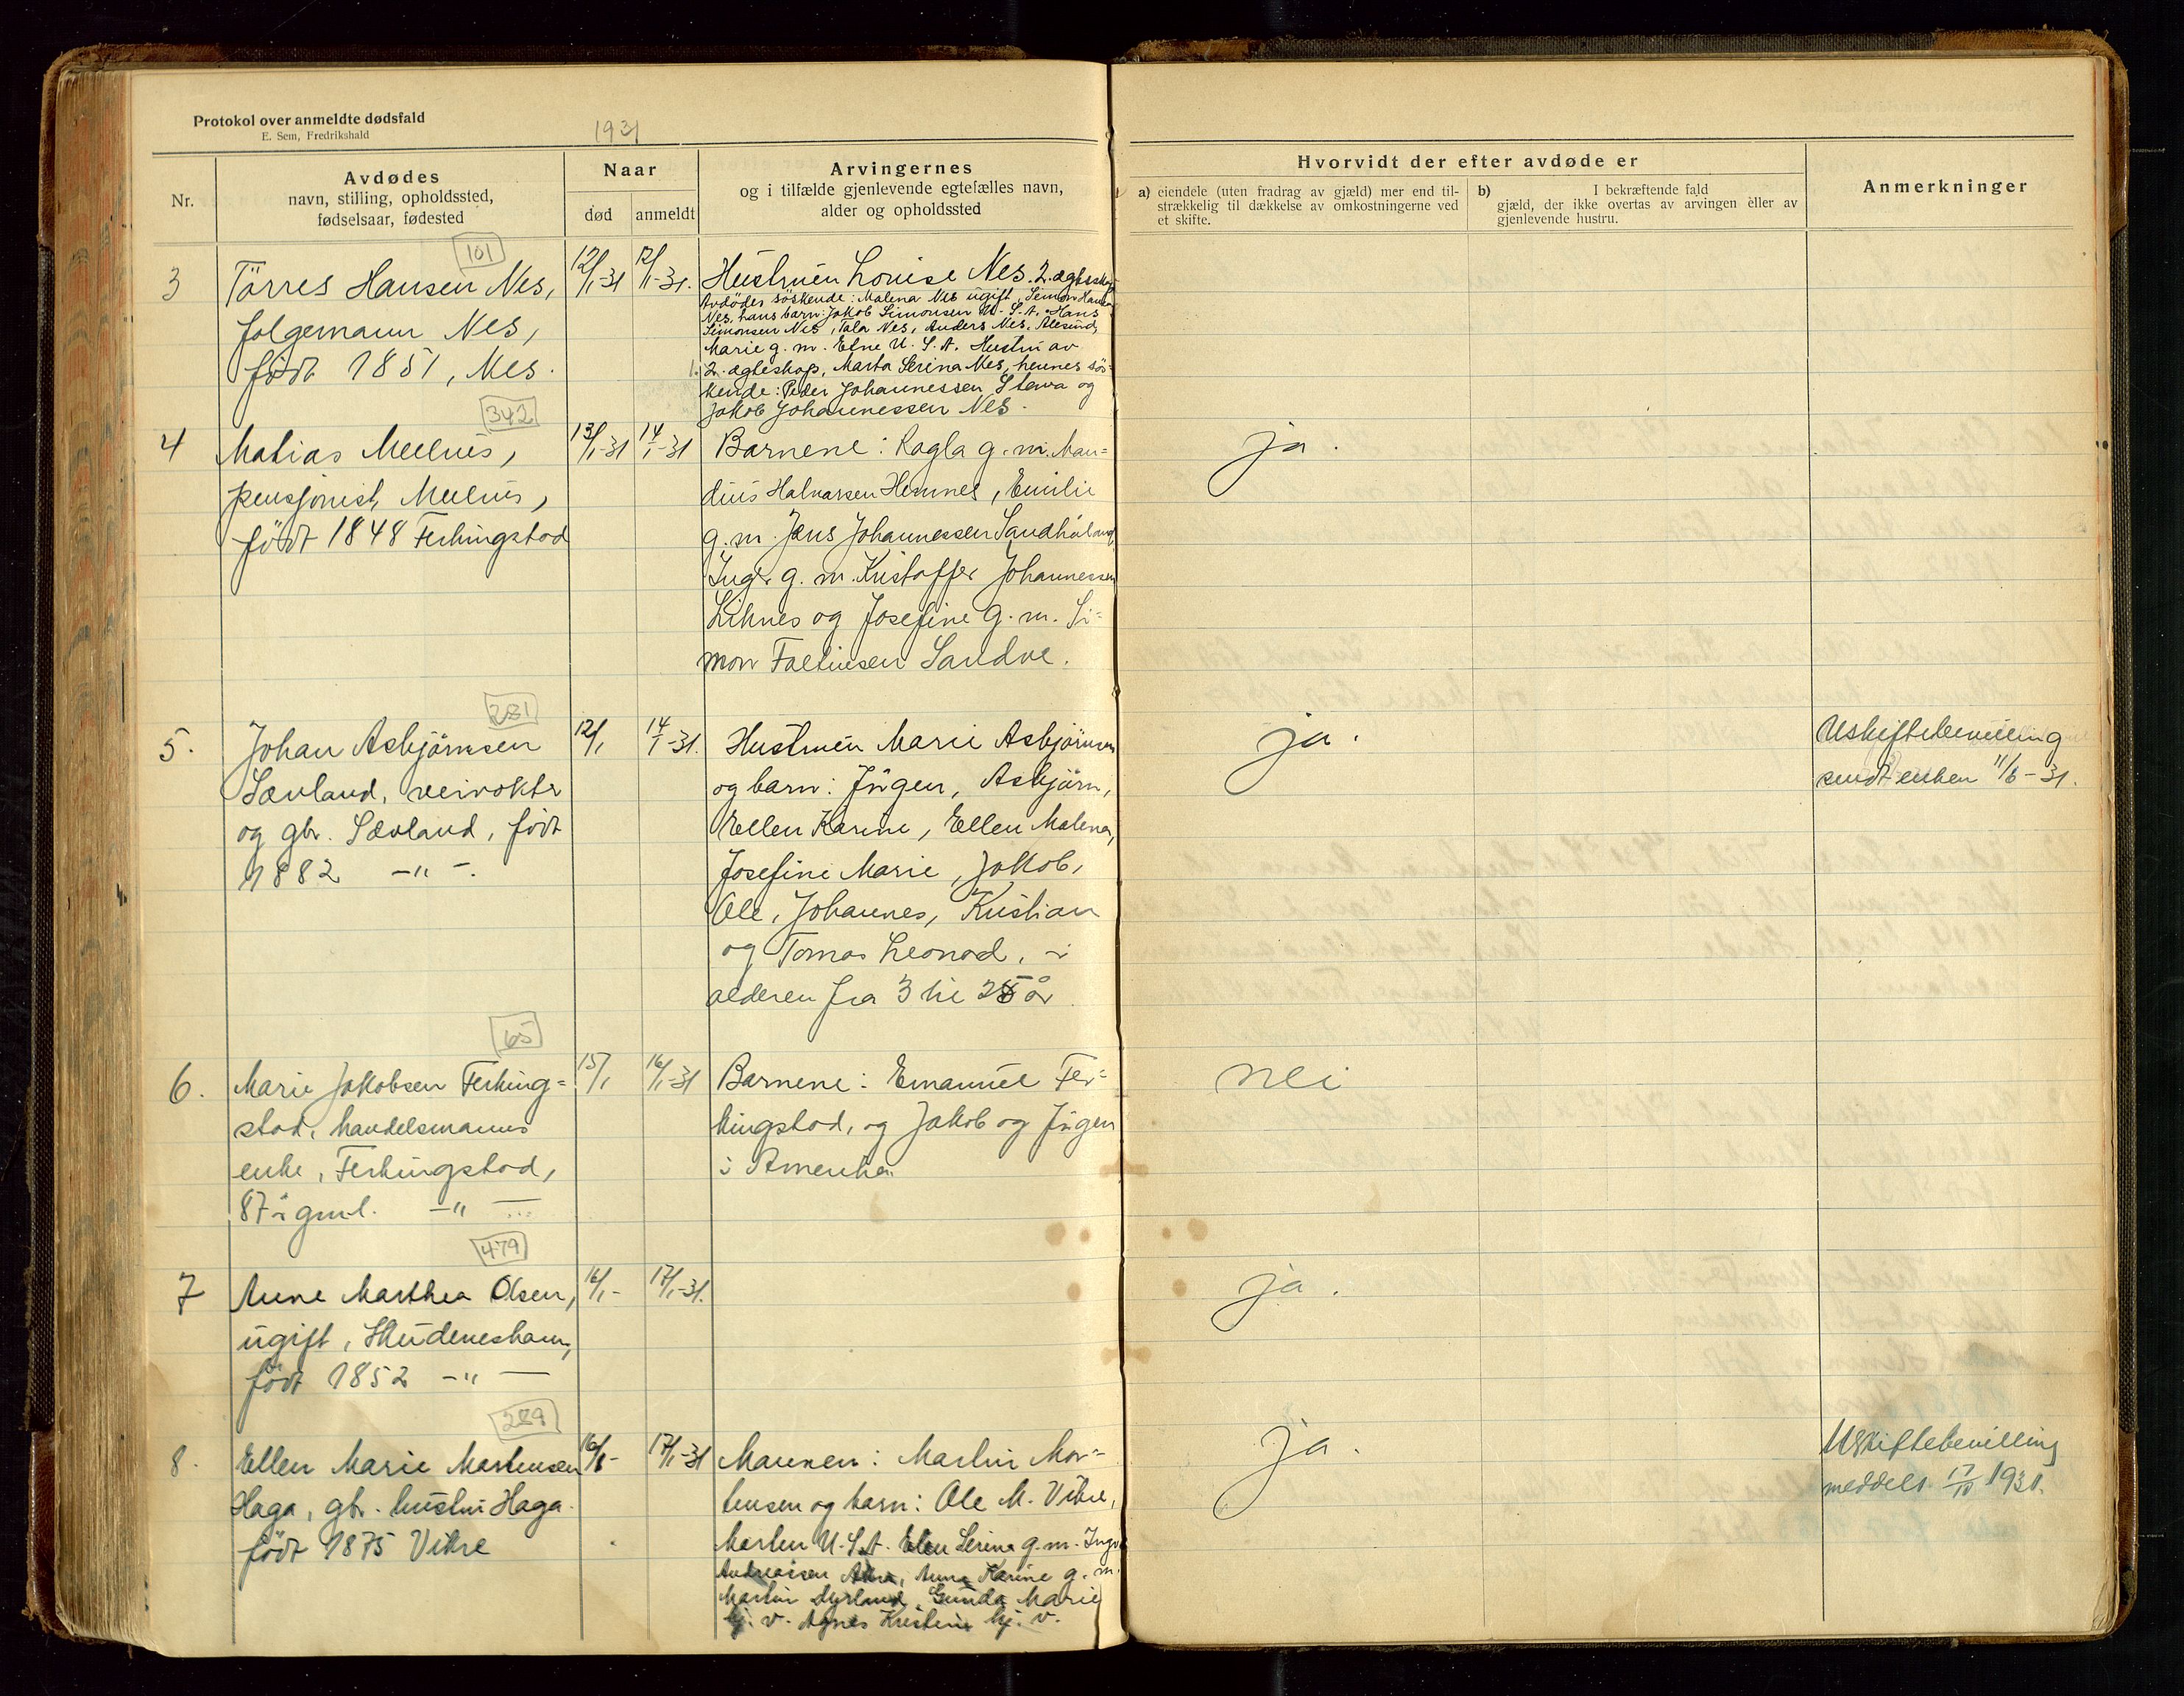 Protokol over anmeldte dødsfald
E. Sem, Fredrikshald
1931
Nr.
Avdødes
navn, stilling, opholdssted,
fødselsaar, fødested
Naar
død
anmeldt
Arvingernes
og i tilfælde gjenlevende egtefælles navn,
alder og opholdssted
Hvorvidt der efter avdøde er
a) eiendele (uten fradrag av gjæld) mer end til-
strækkelig til dækkelse av omkostningerne ved
et skifte.
b) I bekræftende fald
gjæld, der ikke overtas av arvingen eller av
gjenlevende hustru.
Anmerkninger
101
3
Törres Hansen Nes,
folgemann Nes,
födt 1851, Nes.
12/1-31
12/1-31.
Hustruen Louise Nes. 2. ægteskap
Avdödes söskende: Malena Nes ugift, Simon Hansen
Nes, hans barn: Jakob Simonsen U.S.A. Hans
Simonsen Nes, Tala Nes, Anders Nes, Alesund,
Marie g.m. Elne U.S.A. Hustru av
2. ægteskap, Marta Serina Nes, hennes sös-
kende: Peder Johannessen Stava og
Jakob Johannessen Nes.
342
4
Matias Meelnes,
pensjonist, Meelnes,
födt 1848 Ferkingstad
13/1-31
14/1-31
Barnene: Ragla g.m. Man=
dius Halvarsen Hemnes, Emilie
g.m. Jens Johannessen Sandhåland,
Inger g.m. Kristoffer Johannessen
Liknes og Josefine g.m. Si=
mon Faltinsen Sandve.
ja.
231
5.
Johan Asbjörnsen
Sævland, veivokter
og gbr. Sævland, födt
1882 -"-.
12/1
14/1-31.
Hustruen Marie Asbjörnsen
og barn: Jörgen, Asbjörn,
Ellen Karine, Ellen Malena,
Josefine Marie, Jakob,
Ole, Johannes, Kristian
og Tomas Leonard, i
alderen fra 3 til 25 år.
ja.
Uskiftebevilling
sendt enken 11/6-31.
65
6.
Marie Jakobsen Ferking=
stad, handelsmanns
enke, Ferkingstad,
87 år gml. -"-
15/1
16/1-31
Barnene: Emanuel Fer=
kingstad, og Jakob og Jörgen
i Amerika.
nei
479
7
Anne Marthea Olsen,
ugift, Skudeneshavn,
födt 1852 -"-
16/1-
17/1-31.
ja.
289
8.
Ellen Marie Mortensen
Haga, gbr. hustru Haga
födt 1875 Vikre
16/1-
17/1-31
Mannen: Martin Mor=
tensen og barn: Ole M. Vikre,
Morten U.S.A. Elen Serina g.m. Ingv.
Andreassen Åkra, Anna Karine g.m.
Martin Dyrland, Gunda Marie
hj.v. Agnes Kristine hj.v.
ja.
Uskiftebevilling
meddelt 17/10 1931.